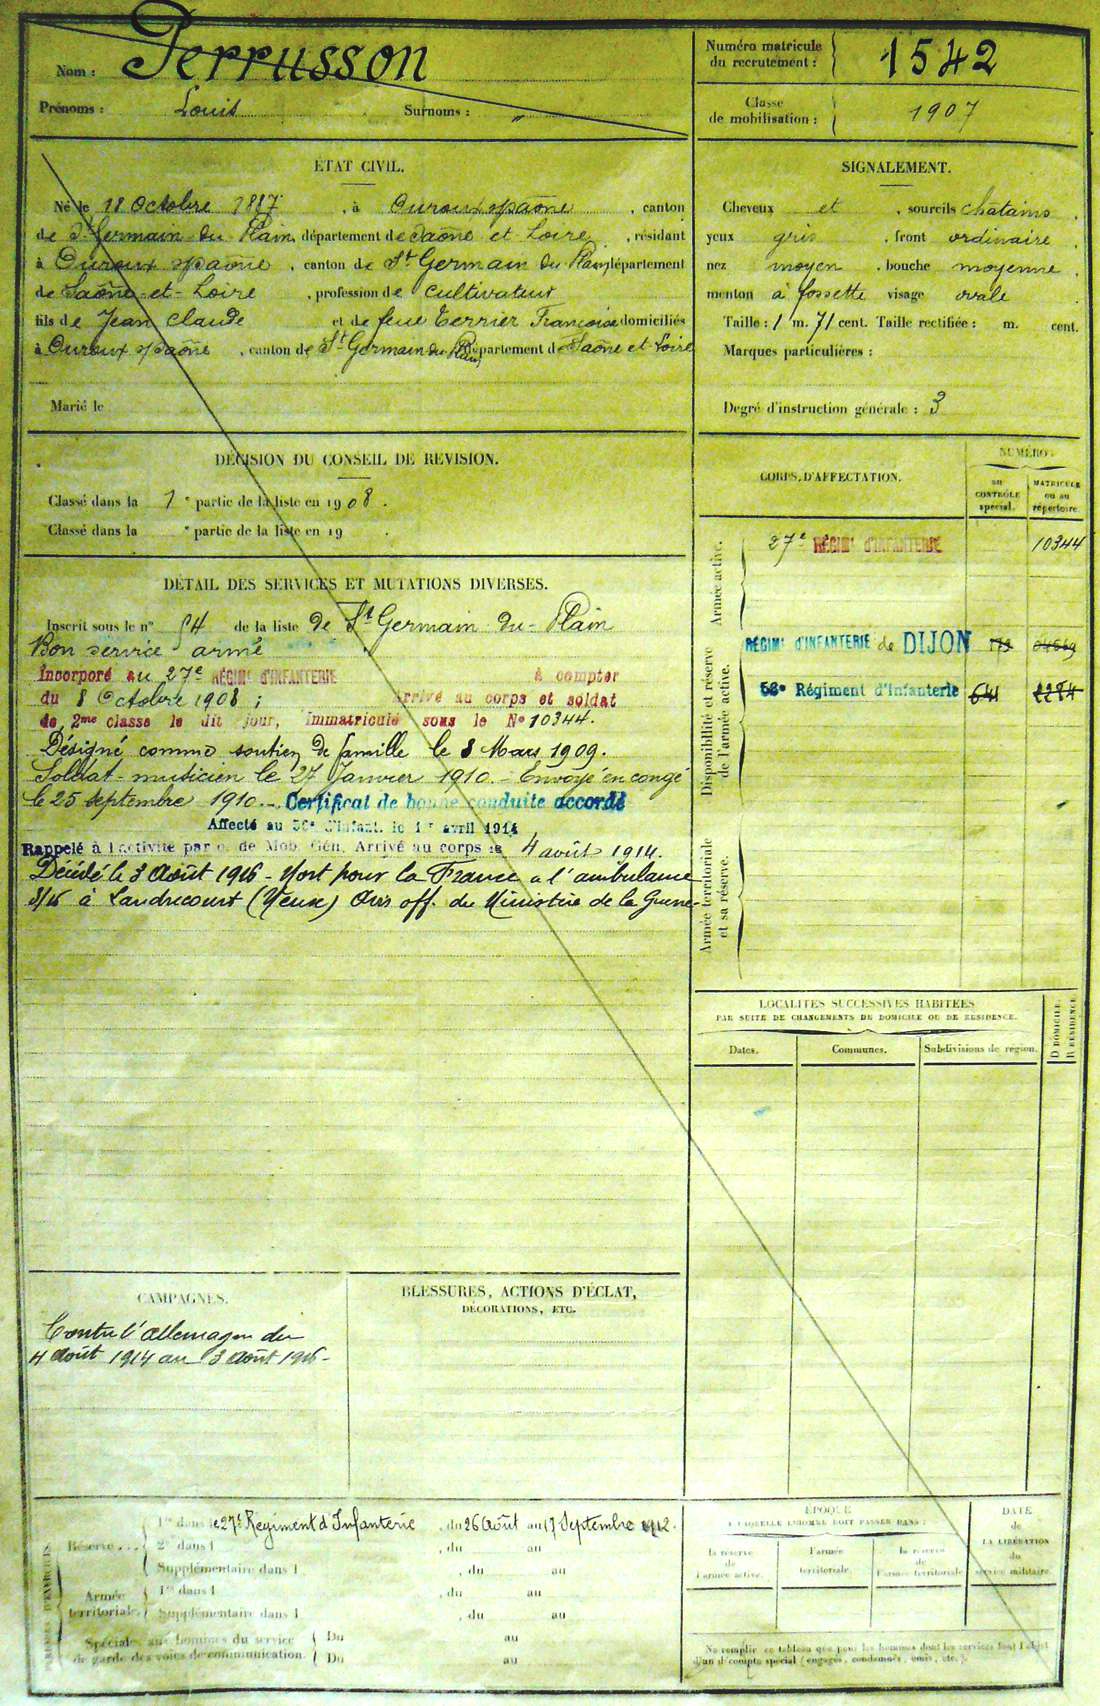 Nom : Perrusson
Prénoms : Louis Surnoms : "
Numéro matricule du recrutement : 1542
Classe de mobilisation : 1907
ÉTAT CIVIL.
Né le 18 Octobre 1887, à Ouroux s/Saône, canton
de St Germain du Plain, département de Saône et Loire, résidant
à Ouroux s/Saône, canton de St Germain du Plain, département
de Saône-et-Loire, profession de cultivateur
fils de Jean Claude et de feue Terrier Françoise domiciliés
à Ouroux s/Saône, canton de St Germain du Plain, département de Saône et Loire
Marié le
SIGNALEMENT.
Cheveux et, sourcils chatains
yeux gris, front ordinaire
nez moyen, bouche moyenne
menton à fossette visage ovale
Taille : 1 m. 71 cent. Taille rectifiée : m. cent.
Marques particulières :
Degré d'instruction générale : 3
DÉCISION DU CONSEIL DE REVISION.
Classé dans la 1e partie de la liste en 1908.
Classé dans la e partie de la liste en 19 .
DÉTAIL DES SERVICES ET MUTATIONS DIVERSES.
Inscrit sous le n° 54 de la liste de St Germain du Plain
Bon service armé
Incorporé au 27e RÉGIMt D'INFANTERIE à compter
du 8 Octobre 1908 ; Arrivé au corps et soldat
de 2me classe le dit jour, Immatriculé sous le N° 10344.
Désigné comme soutien de famille le 8 Mars 1909.
Soldat-musicien le 27 Janvier 1910.- Envoyé en congé
le 25 septembre 1910.- Certificat de bonne conduite accordé
Affecté au 56e d'Infant. le 1er avril 1914
Rappelé à l'activité par o. de Mob. Gén. Arrivé au corps le 4 août 1914.
Décédé le 3 Août 1916 - Mort pour la France à l'ambulance
3/16 à Landrecourt (Meuse) Avis off. du Ministère de la Guerre-
CORPS D'AFFECTATION.
NUMÉRO :
au CONTRÔLE spécial.
MATRICULE ou au répertoire.
Armée active.
27e RÉGIMt D'INFANTERIE 10344
Disponibilité et réserve de l'armée active.
RÉGIMt D'INFANTERIE de DIJON 173
56e Régiment d'Infanterie 641
Armée territoriale et sa réserve.
LOCALITÉS SUCCESSIVES HABITÉES
PAR SUITE DE CHANGEMENTS DE DOMICILE OU DE RÉSIDENCE.
Dates. Communes. Subdivisions de région. D DOMICILE. R RÉSIDENCE.
CAMPAGNES.
Contre l'Allemagne du
4 Août 1914 au 3 Août 1916-
BLESSURES, ACTIONS D'ÉCLAT,
DÉCORATIONS, ETC.
PÉRIODES D'EXERCICES
Réserve... 1re dans le 27e Régiment d'Infanterie, du 26 Août au 17 Septembre 1912.
2e dans l , du au
Supplémentaire dans l , du au
Armée territoriale. 1re dans l , du au
Supplémentaire dans l , du au
Spéciales aux hommes du service Du au
de garde des voies de communication. Du au
ÉPOQUE
A LAQUELLE L'HOMME DOIT PASSER DANS :
la réserve de l'armée active.
l'armée territoriale.
la réserve de l'armée territoriale
DATE de LA LIBÉRATION du service militaire.
Ne remplir ce tableau que pour les hommes dont les services font l'objet
d'un compte spécial (engagés, condamnés, omis, etc.).